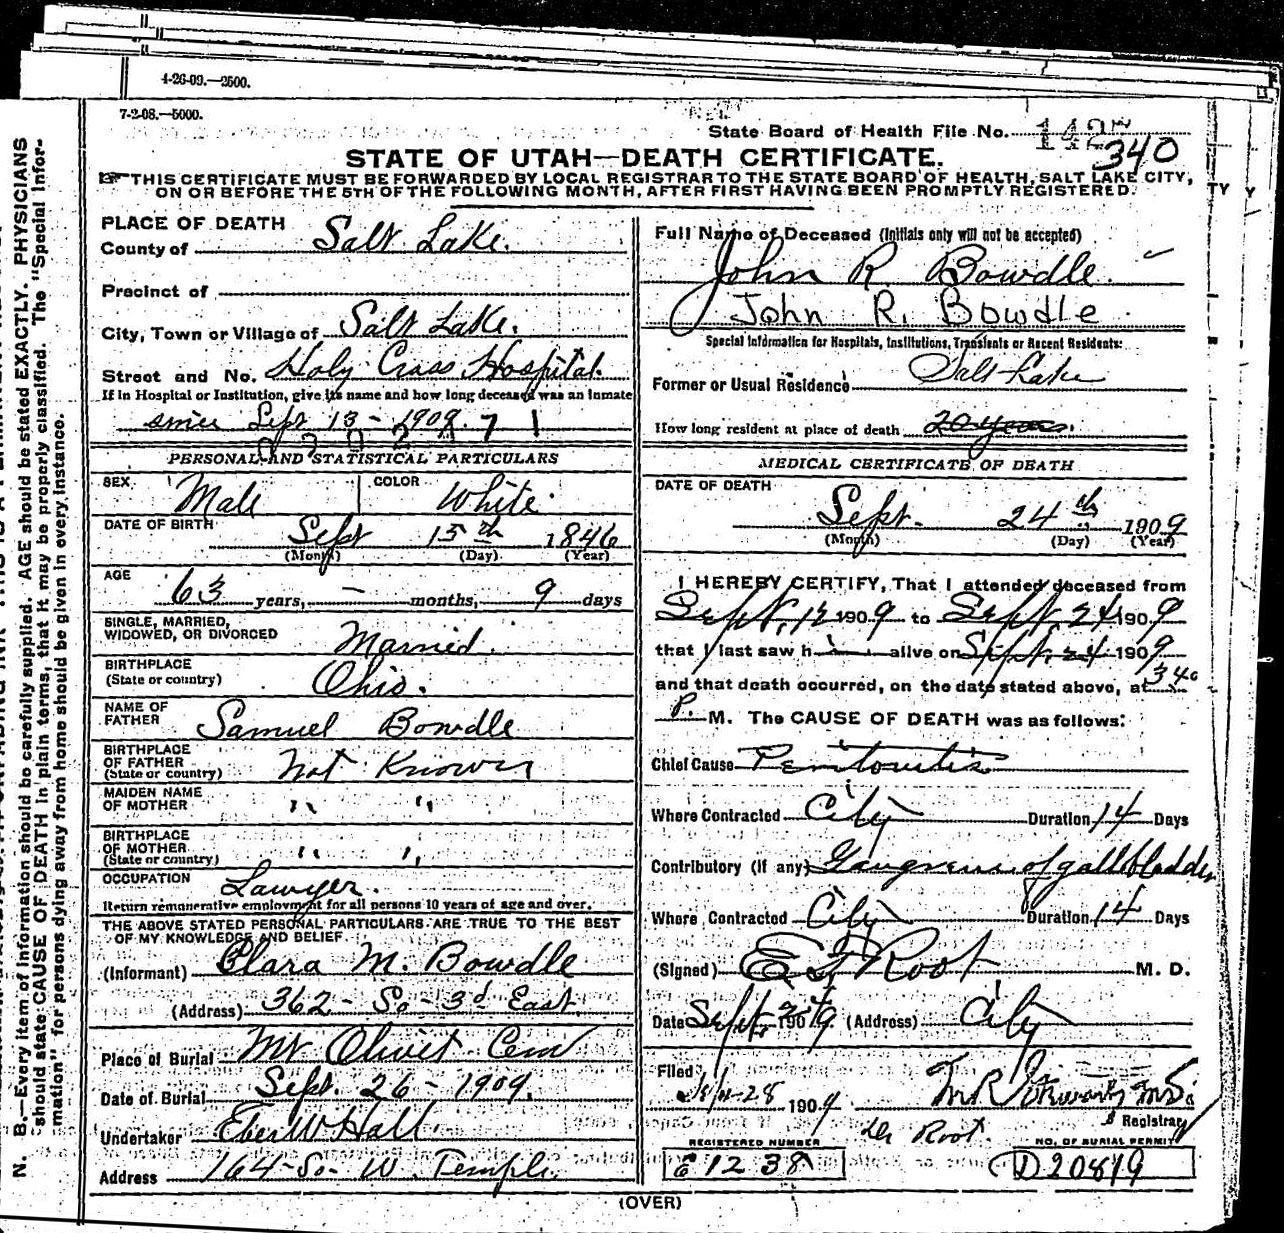 4-26-09.—2500.
7-2-08.—5000.
State Board of Health File No. 142
340
STATE OF UTAH—DEATH CERTIFICATE.
☞THIS CERTIFICATE MUST BE FORWARDED BY LOCAL REGISTRAR TO THE STATE BOARD OF HEALTH, SALT LAKE CITY,
ON OR BEFORE THE 5TH OF THE FOLLOWING MONTH, AFTER FIRST HAVING BEEN PROMPTLY REGISTERED.
PLACE OF DEATH
County of Salt Lake.
Precinct of
City, Town or Village of Salt Lake.
Street and No. Holy Cross Hospital.
If in Hospital or Institution, give its name and how long deceased was an inmate
since Sept 13 - 1909.
PERSONAL AND STATISTICAL PARTICULARS
SEX Male COLOR White
DATE OF BIRTH Sept 15th 1846
(Month) (Day) (Year)
AGE 63 years, — months, 9 days
SINGLE, MARRIED,
WIDOWED, OR DIVORCED Married.
BIRTHPLACE
(State or country) Ohio.
NAME OF
FATHER Samuel Bowdle
BIRTHPLACE
OF FATHER
(State or country) Not Known
MAIDEN NAME
OF MOTHER " "
BIRTHPLACE
OF MOTHER
(State or country) " "
OCCUPATION Lawyer.
Return remunerative employment for all persons 10 years of age and over.
THE ABOVE STATED PERSONAL PARTICULARS ARE TRUE TO THE BEST
OF MY KNOWLEDGE AND BELIEF
(Informant) Clara M. Bowdle
(Address) 362 - So - 3d East
Place of Burial Mt Olivet Cem
Date of Burial Sept. 26 - 1909.
Undertaker Eber W Hall.
Address 164 - So - W. Temple.
Full Name of Deceased (Initials only will not be accepted)
John R Bowdle.
John R. Bowdle
Special Information for Hospitals, Institutions, Transients or Recent Residents:
Former or Usual Residence Salt Lake
How long resident at place of death 20 years.
MEDICAL CERTIFICATE OF DEATH
DATE OF DEATH
Sept. 24th 1909
(Month) (Day) (Year)
I HEREBY CERTIFY, That I attended deceased from
Sept. 12 1909 to Sept. 24 1909
that I last saw him alive on Sept. 24 1909
and that death occurred, on the date stated above, at 340
P. M. The CAUSE OF DEATH was as follows:
Chief Cause Peritonitis
Where Contracted City Duration 14 Days
Contributory (If any) Gangrene of gall bladder
Where Contracted City Duration 14 Days
(Signed) E F Root M. D.
Date Sept. 1909 (Address) City
Filed
Sept 28 1909.
Registrar
Dr Root.
REGISTERED NUMBER
E 1238
NO. OF BURIAL PERMIT
D20819
(OVER)
N. B.—Every item of information should be carefully supplied. AGE should be stated EXACTLY. PHYSICIANS
should state CAUSE OF DEATH in plain terms, that it may be properly classified. The "Special Infor-
mation" for persons dying away from home should be given in every instance.